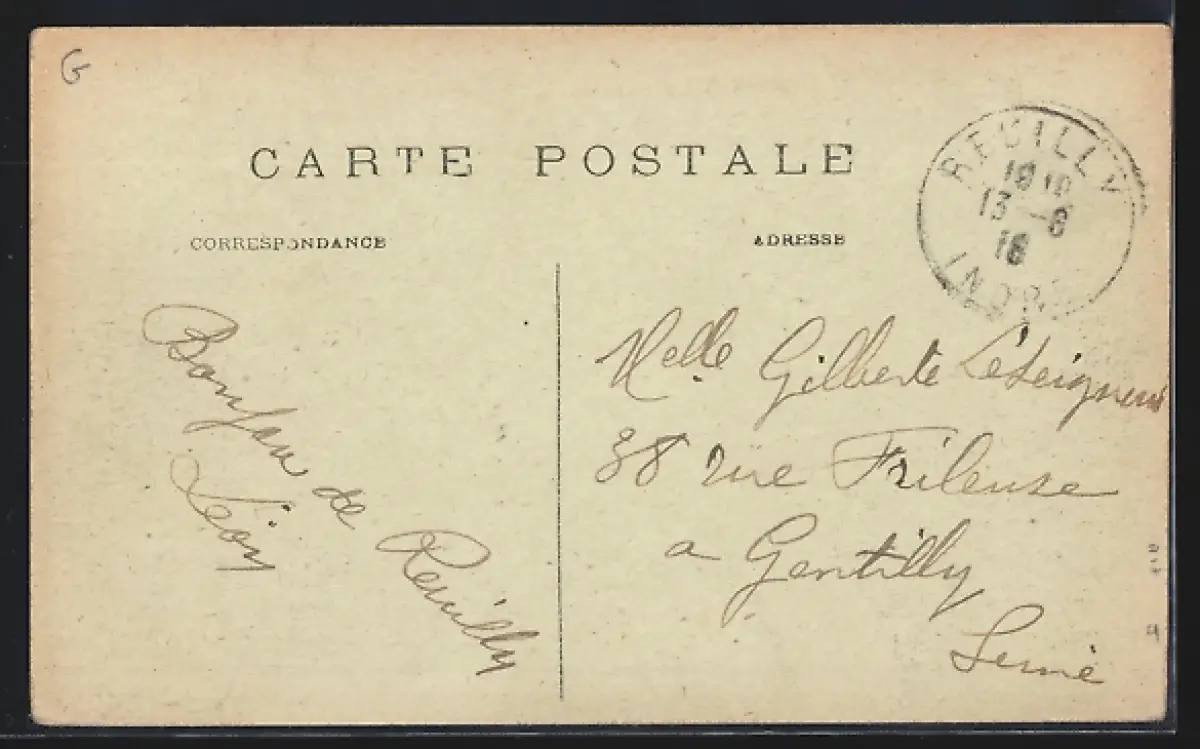 G
CARTE POSTALE
CORRESPONDANCE
ADRESSE
REUILLY
13 - 8
16
INDRE
Bonjour de Reuilly
Léon
Melle Gilberte Leseigneur
38 rue Frileuse
a Gentilly
Seine